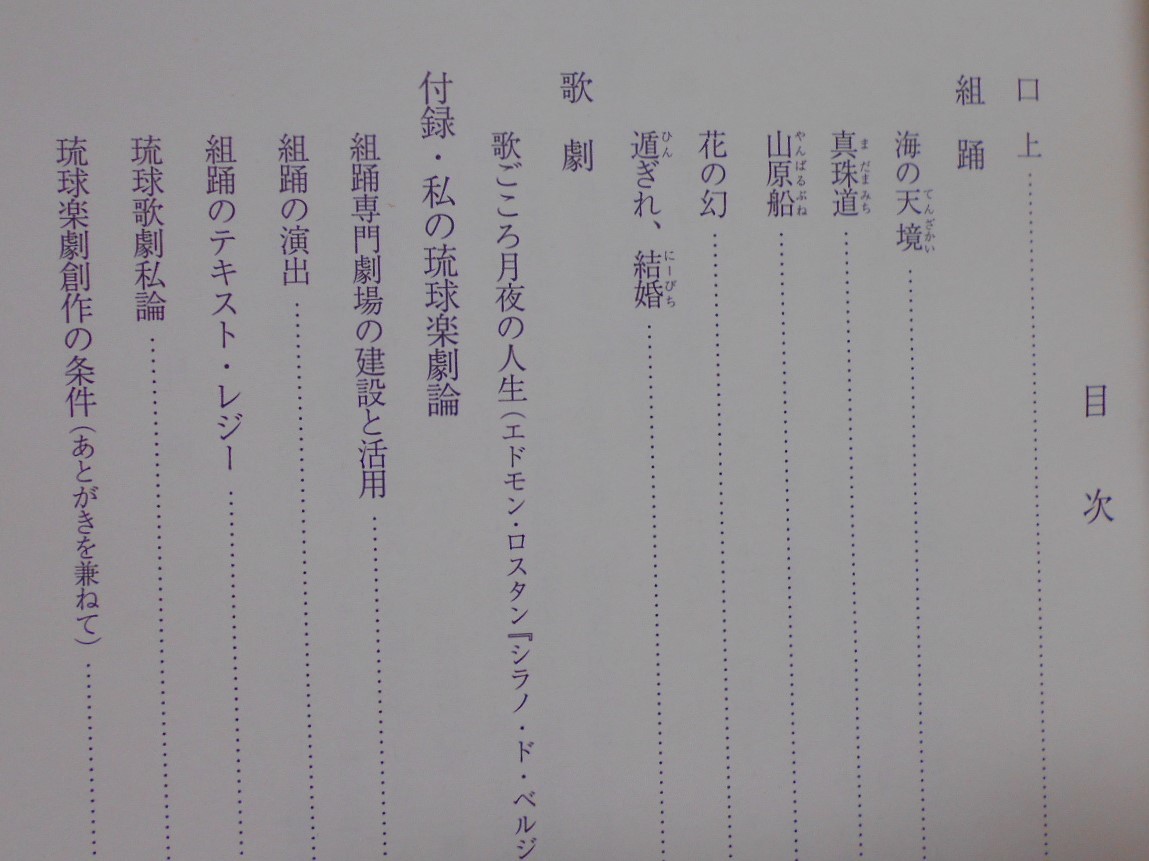 目次
口上
組踊
海の天境
てんざかい
真珠道
まだまみち
山原船
やんばるぶね
花の幻
遁ぎれ、結婚
ひん
にーびち
歌劇
歌ごころ月夜の人生（エドモン・ロスタン『シラノ・ド・ベルジ
付録・私の琉球楽劇論
組踊専門劇場の建設と活用
組踊の演出
組踊のテキスト・レジー
琉球歌劇私論
琉球楽劇創作の条件（あとがきを兼ねて）